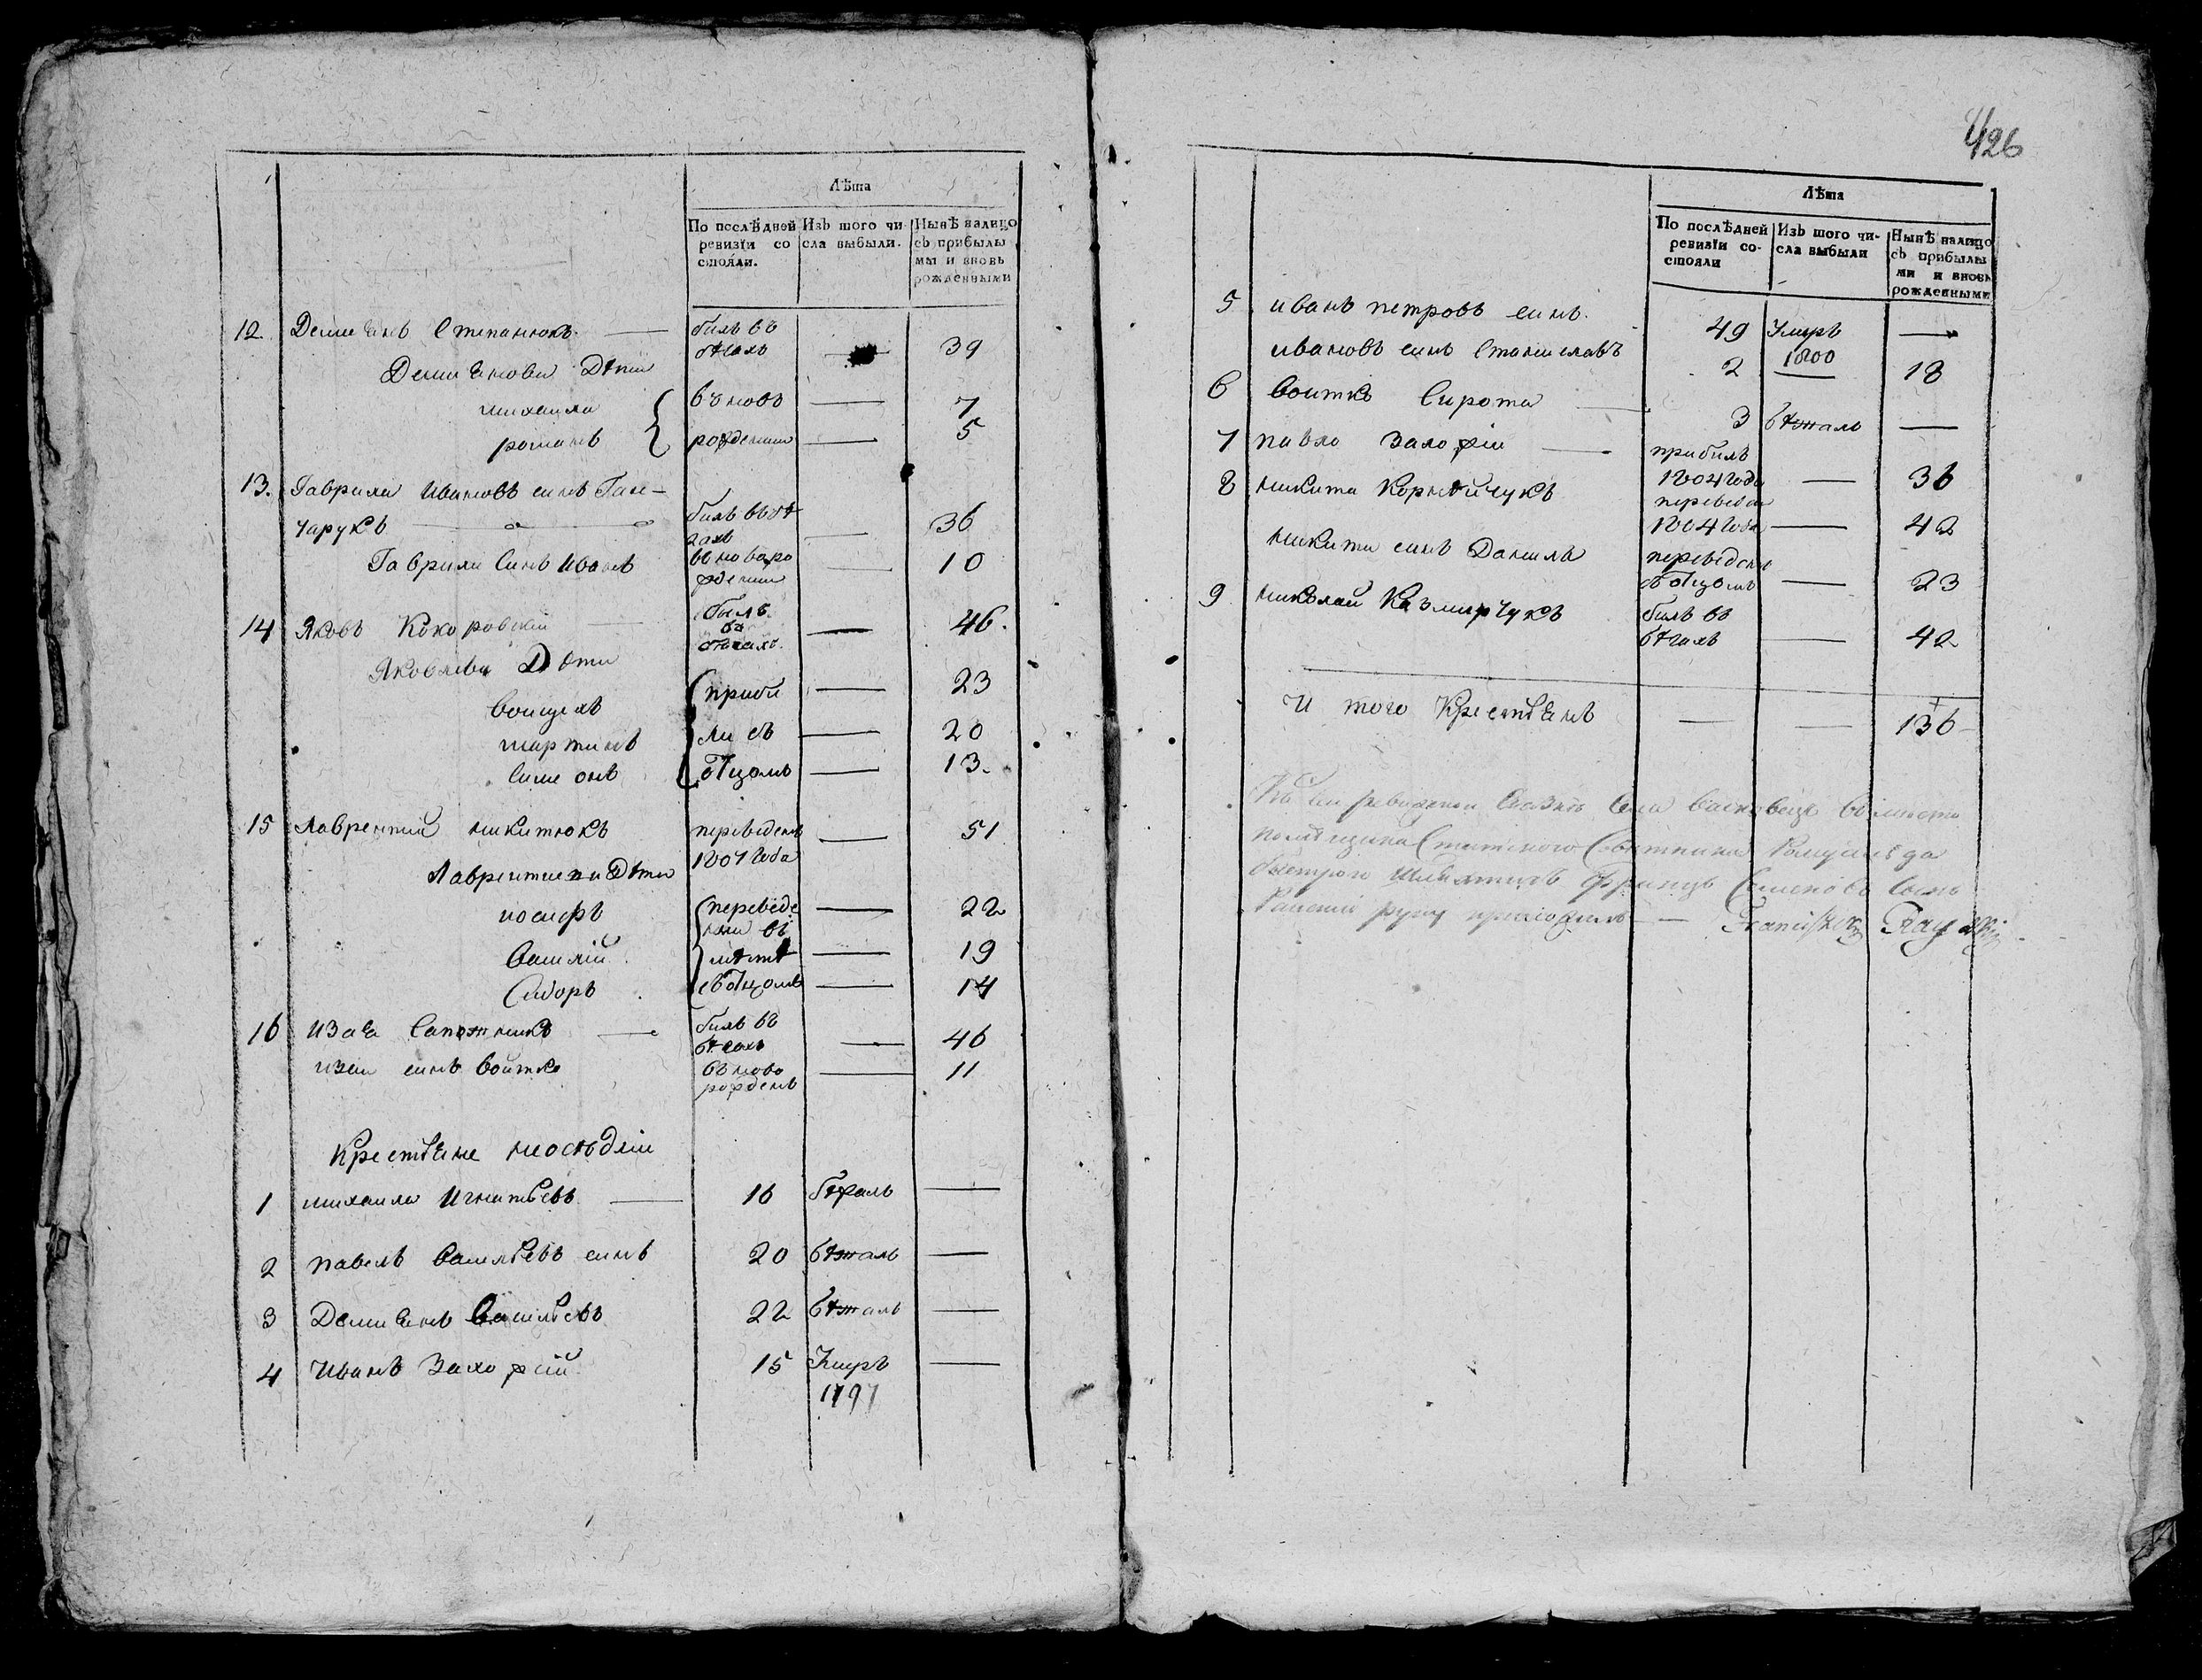 Лѣта
По послѣдней ревизіи состояли.
Изъ того числа выбыли.
Нынѣ налицо съ прибылыми и вновь рожденными
12. Демиянъ Степанюкъ — билъ въ бѣгахъ — 39
Демиянови Дѣти
михаила { въновъ — 7
романъ { рожденіи — 5
13. Гаврила Ивановъ синъ Ган-
чарукъ — билъ въ бѣгахъ — 36
Гаврили Синъ Иванъ въново рожденіи — 10
14 Яковъ Кокоровскій — билъ въ бѣгахъ. — 46.
Яковлеви Дѣти
воицехъ { приби — 23
мартинъ { ли съ — 20
Симеонъ { отцомъ — 13.
15 Лаврентий никитюкъ переведенъ 1801 года — 51
Лаврентиеви Дѣти
иосифъ { переведени въ — 22
Василій { мѣстѣ — 19
Сидоръ { съ отцомъ — 14
16 Изаа Сапожникъ — билъ въ бѣгахъ — 46
изаи синъ войтко въново рожденъ — 11
Крестѣяне
1 михаила Игнатѣевъ — 16 бѣжалъ —
2 павелъ Василѣевъ синъ 20 бѣжалъ —
3 Демиянъ Василѣевъ 22 бѣжалъ —
4 Иванъ Захорѣій 15 Умръ 1797 —
426
Лѣта
По послѣдней ревизіи состояли
Изъ того числа выбыли
Нынѣ налицо съ прибылыми и вновь рожденными
5 иванъ петровъ синъ. 49 Умръ 1800 —
ивановъ синъ Станиславъ 2 — 18
6 Воитко Сирота — 3 бѣжалъ —
7 павло Захорѣіи — прибилъ 1804 года — 36
8 никита Корнѣйчукъ переведенъ 1804 года — 42
никити синъ Данила переведенъ съ отцомъ — 23
9 николай Казмирчукъ билъ въ бѣгахъ — 42
И того Крестѣянъ — — 136
Къ сей ревизкой сказкѣ Села
помѣщика Статского Советника
Францъ Семеновъ сынъ
руку приложилъ — Franciszek